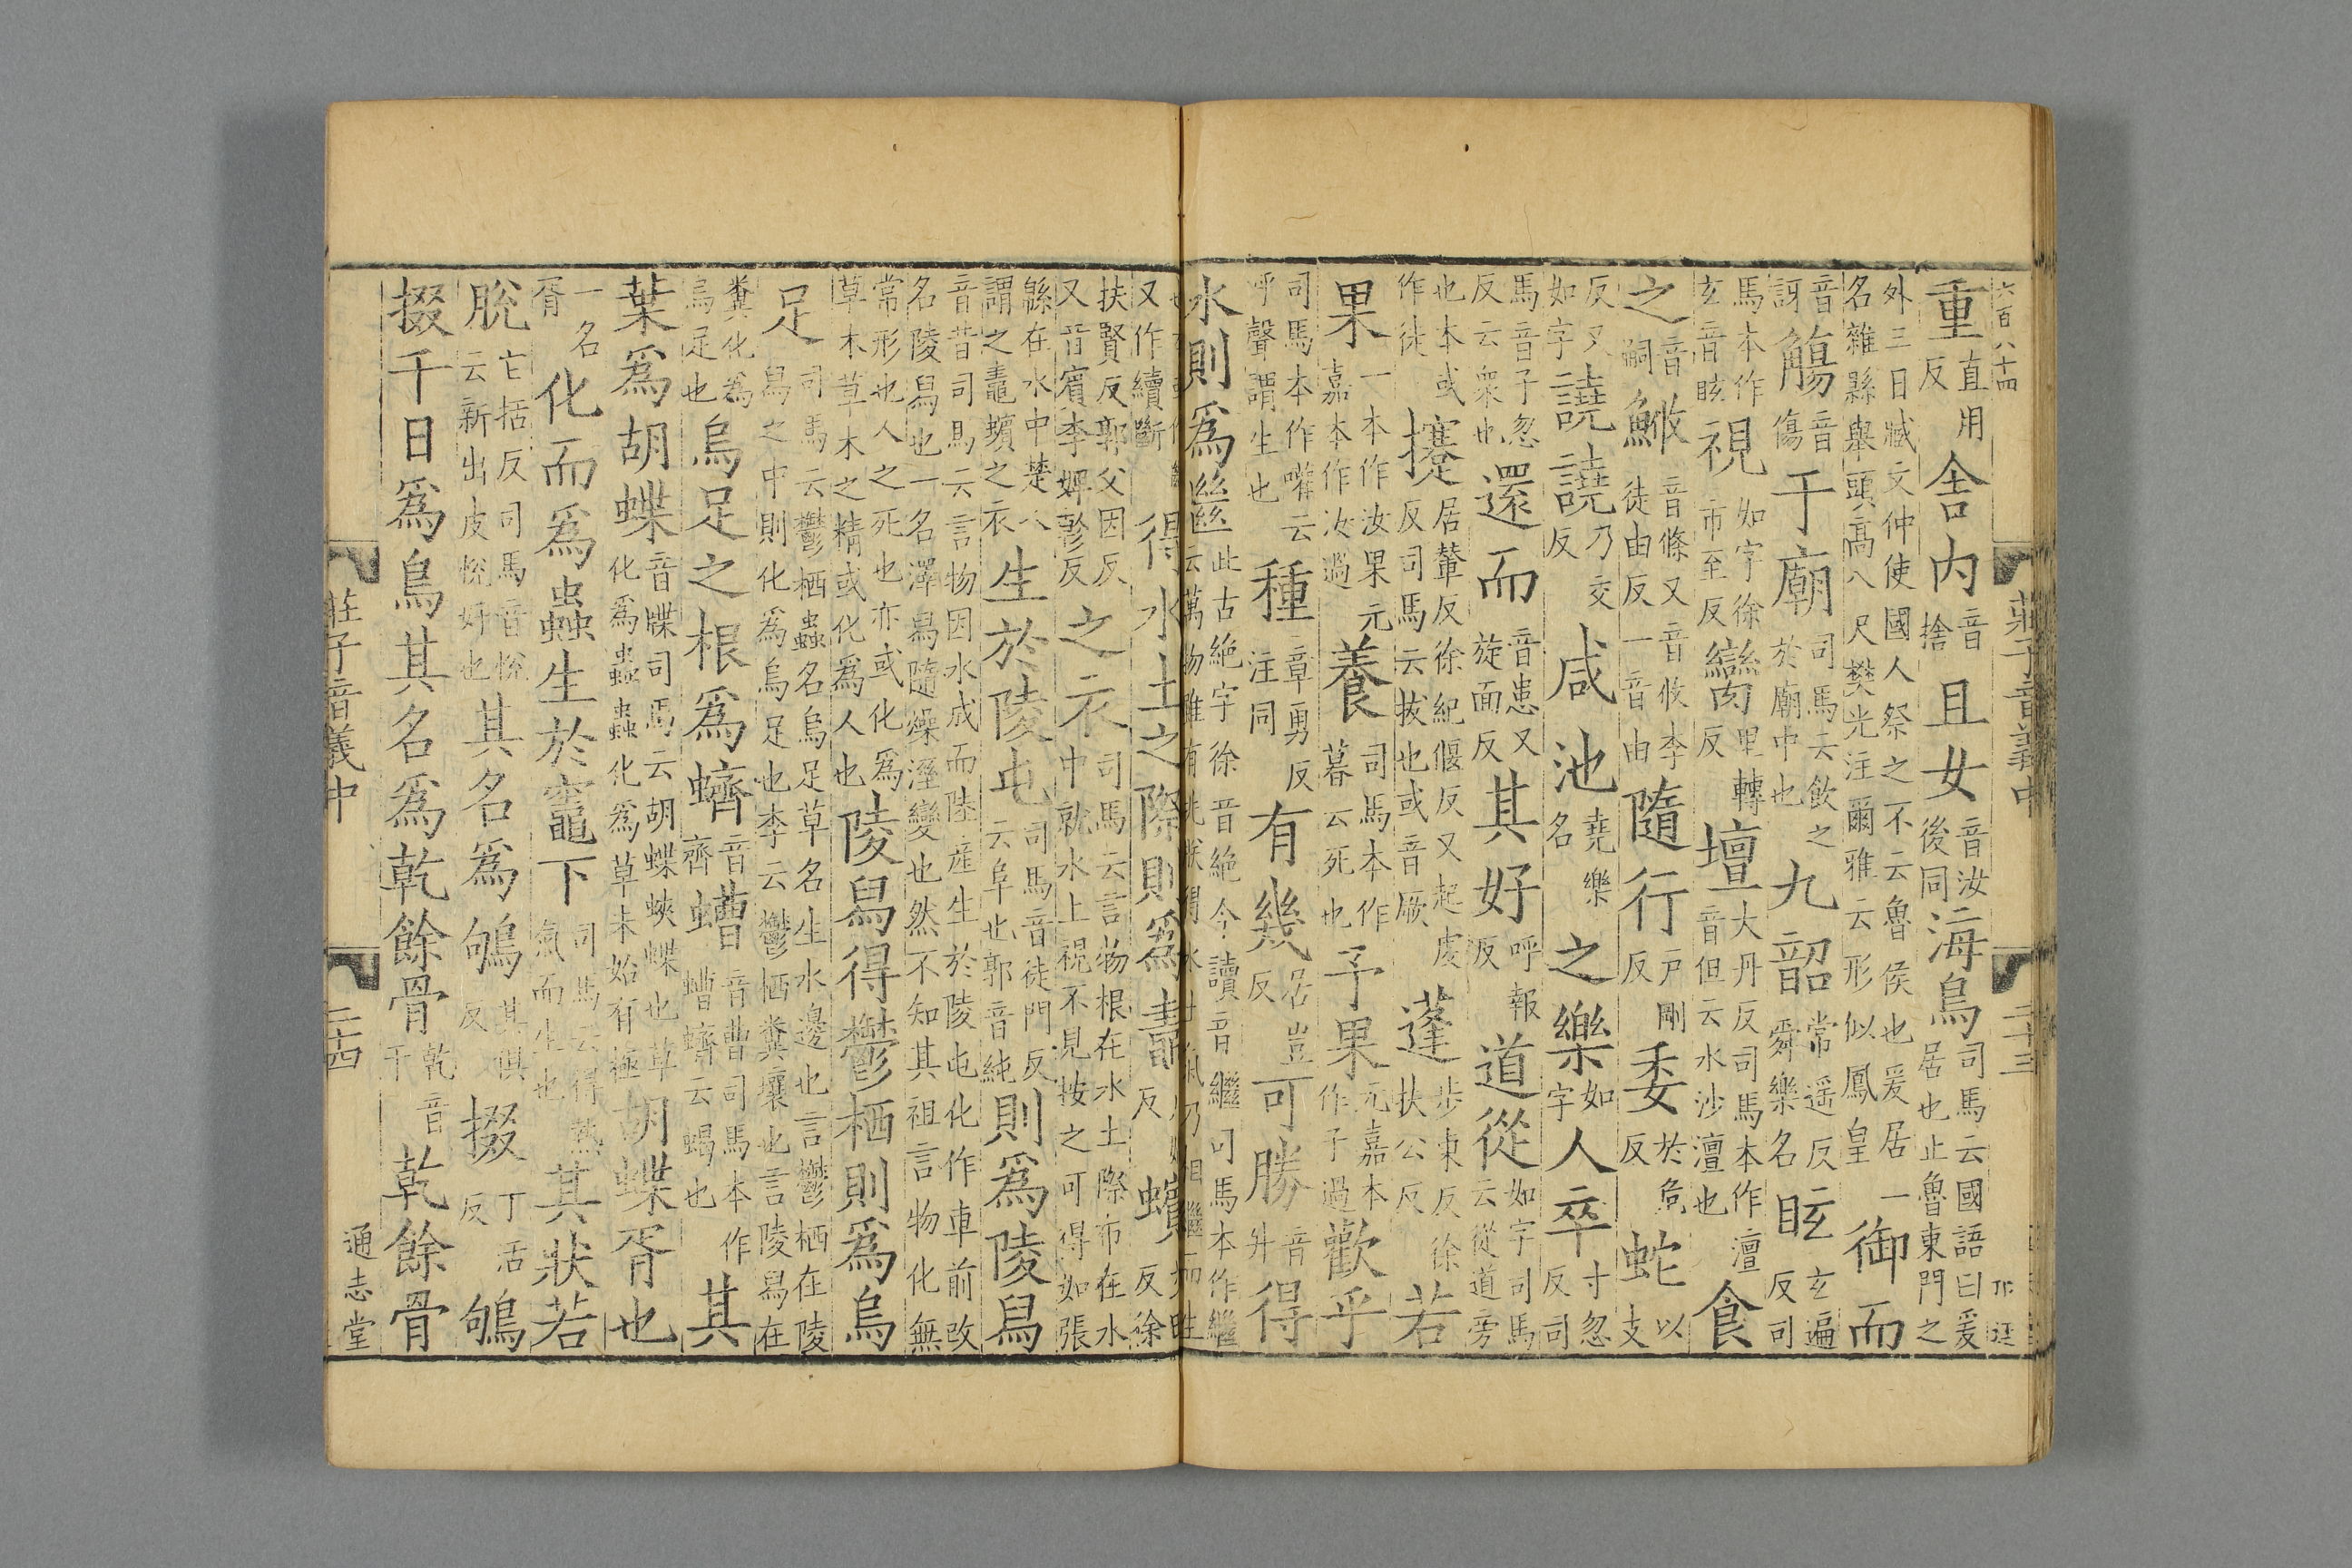 六百八十四　莊子音義中　二十三
重直用反舍内音捨且女音汝後同海鳥司馬云國語曰爰居也止魯東門之
外三日臧文仲使國人祭之不云魯侯也爰居一名雜縣舉頭高八尺樊光注爾雅云形似鳳皇御而
音訝觴音傷于廟司馬云飲之於廟中也九韶常遥反舜樂名眩玄遍反司
馬本作玄音眩視如字徐市至反臠里轉反壇大丹反司馬本作澶音但云水沙澶也食
之音嗣鰷音條又音攸李徒由反一音由隨行戸剛反委於危反蛇以支
反又如字譊譊乃交反咸池堯樂名之樂如字人卒寸忽反司
馬音子忽反云衆也還而音患又旋面反其好呼報反道從如字司馬云從道旁
也本或作徒攓居輦反徐紀偃反又起虔反司馬云拔也或音厥蓬步東反徐扶公反若
果一本作汝果元嘉本作汝過養司馬本作暮云死也予果元嘉本作子過歡乎
司馬本作嚾云呼聲謂生也種章勇反注同有幾居豈反可勝音升得
水則爲㡭此古絶字徐音絶今讀音繼司馬本作繼云萬物雖有兆朕得水土氣乃相繼而生
又作續斷得水土之際則爲蠙反徐
扶賢反郭父因反又音賓李婢軫反之衣司馬云言物根在水土際布在水中就水上視不見按之可得如張
緜在水中楚人謂之鼃蠙之衣生於陵屯司馬音徒門反云阜也郭音純則爲陵舄
音昔司馬云言物因水成而陸産生於陵屯化作車前改名陵舄也一名澤舄隨燥溼變也然不知其祖言物化無
常形也人之死也亦或化爲草木草木之精或化爲人也陵舄得鬱栖則爲烏
足司馬云鬱栖蟲名烏足草名生水邊也言鬱栖在陵舄之中則化爲烏足也李云鬱栖糞壤也言陵舄在
糞化爲烏足也烏足之根爲蠐音齊螬音曹司馬本作螬蠐云蝎也其
葉爲胡蝶音牒司馬云胡蝶蛺蝶也草化爲蟲蟲化爲草未始有極胡蝶胥也
一名胥化而爲蟲生於竈下司馬云得熱氣而生也其狀若
脫它括反司馬音悅云新出皮悅好也其名爲鴝其俱反掇丁活反鴝
掇千日爲鳥其名爲乾餘骨乾音干乾餘骨
莊子音義中　二十四　通志堂